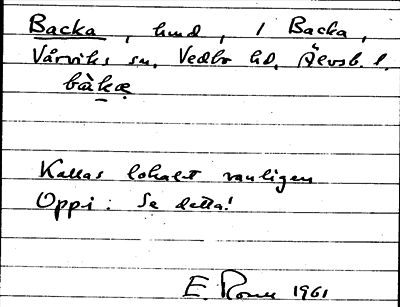 Backa, hmd, 1 Backa,
Vårviks sn, Vedbo hd, Älvsb. l.
bàkæ
Kallas lokalt vanligen
Oppi. Se detta!
E. Rosell 1961